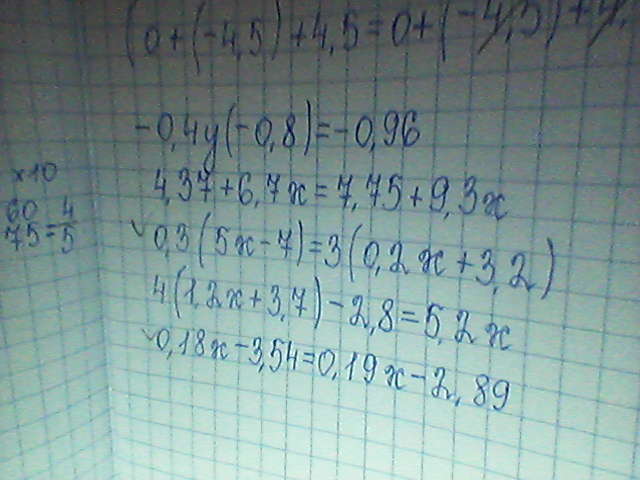 (0+(-4,5)+4,5=0+(-4,5)+4,
-0,4y(-0,8)=-0,96
x10
4,37+6,7x=7,75+9,3x
60 4
75=5
0,3(5x-7)=3(0,2x+3,2)
4(1,2x+3,7)-2,8=5,2x
0,18x-3,54=0,19x-2,89